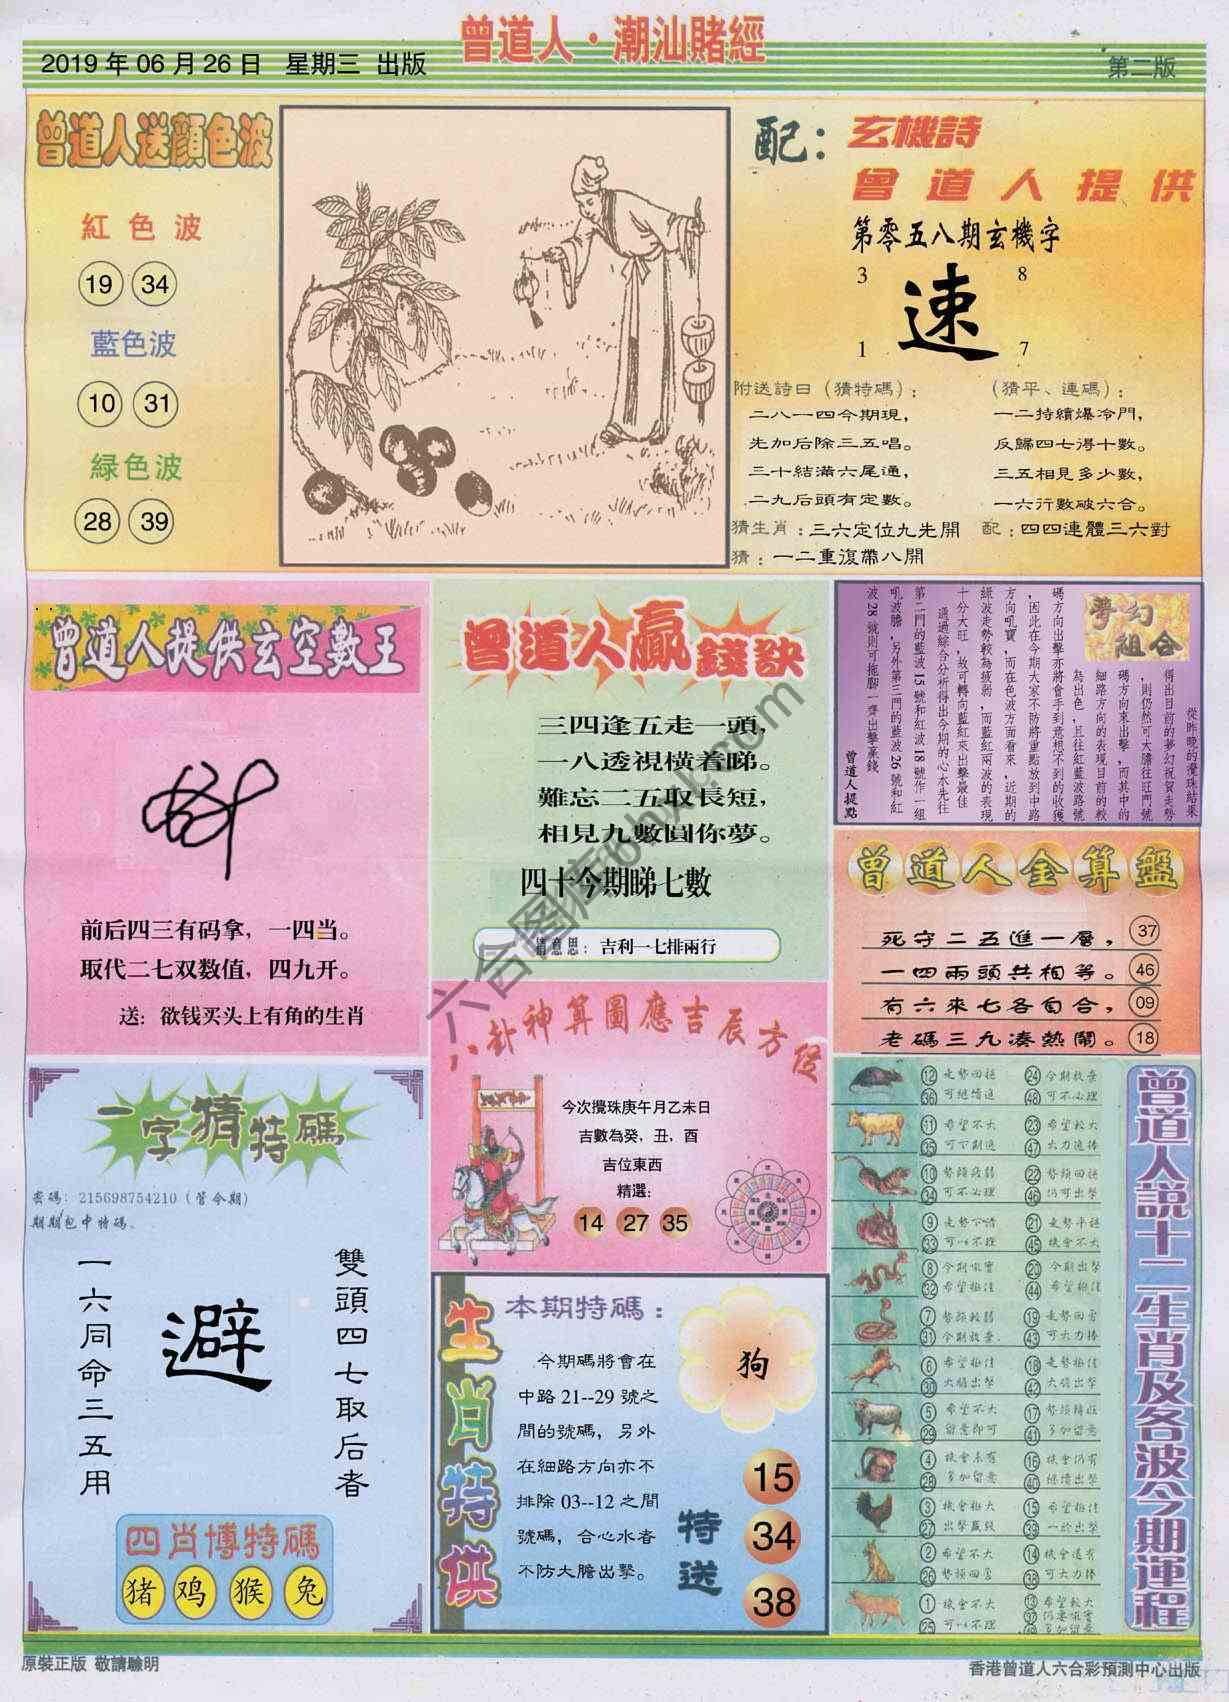 曾道人·潮汕賭經
2019年06月26日 星期三 出版
第二版
曾道人送顏色波
紅色波
19 34
藍色波
10 31
緑色波
28 39
配：玄機詩
曾道人提供
第零五八期玄機字
3 8
速
1 7
附送詩曰（猜特碼）：
二八一四今期現，
先加后除三五唱。
三十結滿六尾通，
二九后頭有定數。
（猜平、連碼）：
一二持續爆冷門，
反歸四七得十數。
三五相見多少數，
一六行數破六合。
猜生肖：三六定位九先開
配：四四連體三六對
猜：一二重復帶八開
曾道人提供玄空數王
前后四三有码拿，一四当。
取代二七双数值，四九开。
送：欲钱买头上有角的生肖
曾道人贏錢訣
三四逢五走一頭，
一八透視橫着睇。
難忘二五取長短，
相見九數圓你夢。
四十今期睇七數
猜意思：吉利一七排兩行
夢幻組合
從昨晚的攪珠結果
得出目前的夢幻祝賀走勢
，則仍然可大膽往旺門號
碼方向來出擊，而其中的
細路方向的表現目前的較
為出色，且往紅藍波路號
碼方向出擊亦將會手到意想不到的收獲
，因此在今期大家不防將重點放到中路
方向吼寶，而在色波方面看來，近期的
綠波走勢較為疲弱，而藍紅兩波的表現
十分大旺，故可轉向藍紅來出擊最佳
通過綜合分析得出今期的心水先往
第二門的藍波15號和紅波18號作一組
吼波膽，另外第三門的藍波26號和紅
波28號則可拖腳一齊出擊贏錢
曾道人提點
曾道人金算盤
死守二五進一層，37
一四兩頭共相等。46
有六來七各自合，09
老碼三九凑熱鬧。18
八卦神算圖應吉辰方位
今次攪珠庚午月乙未日
吉數為癸，丑，酉
吉位東西
精選：
14 27 35
一字猜特碼
密碼：215698754210（管今期）
期期包中特碼。
雙頭四七取后者
避
一六同命三五用
四肖博特碼
猪 鸡 猴 兔
生肖特供
本期特碼：
狗
今期碼將會在
中路21--29號之
間的號碼，另外
在細路方向亦不
排除03--12之間
號碼，合心水者
不防大膽出擊。
特送
15
34
38
曾道人説十二生肖及各波今期運程
12 走勢回穩 24 今期放棄
36 可繼續追 48 可不必理
11 希望不大 23 希望較大
35 可下網追 47 大力追捧
10 勢頭疲弱 22 勢頭回穩
34 可不必理 46 仍可出擊
9 走勢下滑 21 走勢平穩
33 可以不理 45 機會不大
8 今期吼寶 20 今期出擊
32 希望極佳 44 希望極佳
7 勢頭較弱 19 走勢回勇
31 今期放棄 43 可大力捧
6 希望極佳 18 走勢極佳
30 大膽出擊 42 大膽出擊
5 希望不大 17 勢頭轉旺
29 留意即可 41 多加留意
4 機會未有 16 機會仍有
28 多加留意 40 繼續出擊
3 機會極大 15 希望極佳
27 出擊贏錢 39 一於出擊
2 希望不大 14 機會還有
26 勢頭回勇 38 可大力捧
1 機會不大 13 希望較大
25 可以不理 37 仍要吼寶
49 多加留意
原裝正版 敬請驗明
香港曾道人六合彩預測中心出版
六合图库